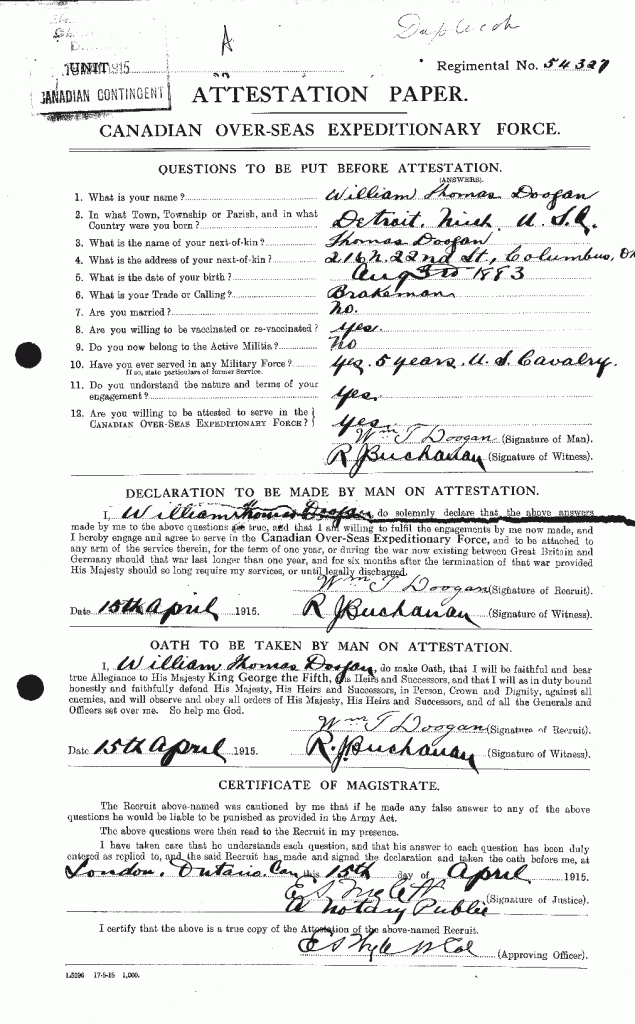 A
UNIT 1915
CANADIAN CONTINGENT
Regimental No. 54327
ATTESTATION PAPER.
CANADIAN OVER-SEAS EXPEDITIONARY FORCE.
QUESTIONS TO BE PUT BEFORE ATTESTATION.
(ANSWERS).
1. What is your name? William Thomas Doogan
2. In what Town, Township or Parish, and in what
Country were you born? Detroit, Mich, U.S.A.
3. What is the name of your next-of-kin? Thomas Doogan
4. What is the address of your next-of-kin? 216 N. 22nd St., Columbus,
5. What is the date of your birth? Aug 3rd 1883
6. What is your Trade or Calling? Brakeman
7. Are you married? No.
8. Are you willing to be vaccinated or re-vaccinated? yes.
9. Do you now belong to the Active Militia? No
10. Have you ever served in any Military Force? yes. 5 years. U.S. Cavalry.
If so, state particulars of former Service.
11. Do you understand the nature and terms of your
engagement? yes.
12. Are you willing to be attested to serve in the
CANADIAN OVER-SEAS EXPEDITIONARY FORCE? yes.
Wm T Doogan (Signature of Man).
R J Buchanan (Signature of Witness).
DECLARATION TO BE MADE BY MAN ON ATTESTATION.
I, William Thomas Doogan, do solemnly declare that the above answers
made by me to the above questions are true, and that I am willing to fulfil the engagements by me now made, and
I hereby engage and agree to serve in the Canadian Over-Seas Expeditionary Force, and to be attached to
any arm of the service therein, for the term of one year, or during the war now existing between Great Britain and
Germany should that war last longer than one year, and for six months after the termination of that war provided
His Majesty should so long require my services, or until legally discharged.
Wm T Doogan (Signature of Recruit).
Date 15th April 1915. R J Buchanan (Signature of Witness)
OATH TO BE TAKEN BY MAN ON ATTESTATION.
I, William Thomas Doogan, do make Oath, that I will be faithful and bear
true Allegiance to His Majesty King George the Fifth, His Heirs and Successors, and that I will as in duty bound
honestly and faithfully defend His Majesty, His Heirs and Successors, in Person, Crown and Dignity, against all
enemies, and will observe and obey all orders of His Majesty, His Heirs and Successors, and of all the Generals and
Officers set over me. So help me God.
Wm T Doogan (Signature of Recruit)
Date 15th April 1915. R. J Buchanan (Signature of Witness).
CERTIFICATE OF MAGISTRATE.
The Recruit above-named was cautioned by me that if he made any false answer to any of the above
questions he would be liable to be punished as provided in the Army Act.
The above questions were then read to the Recruit in my presence.
I have taken care that he understands each question, and that his answer to each question has been duly
entered as replied to, and the said Recruit has made and signed the declaration and taken the oath before me, at
London, Ontario, Can this 15th day of April 1915.
(Signature of Justice)
A Notary Public
I certify that the above is a true copy of the Attestation of the above-named Recruit.
(Approving Officer)
L.5096 17-5-15 1,000.